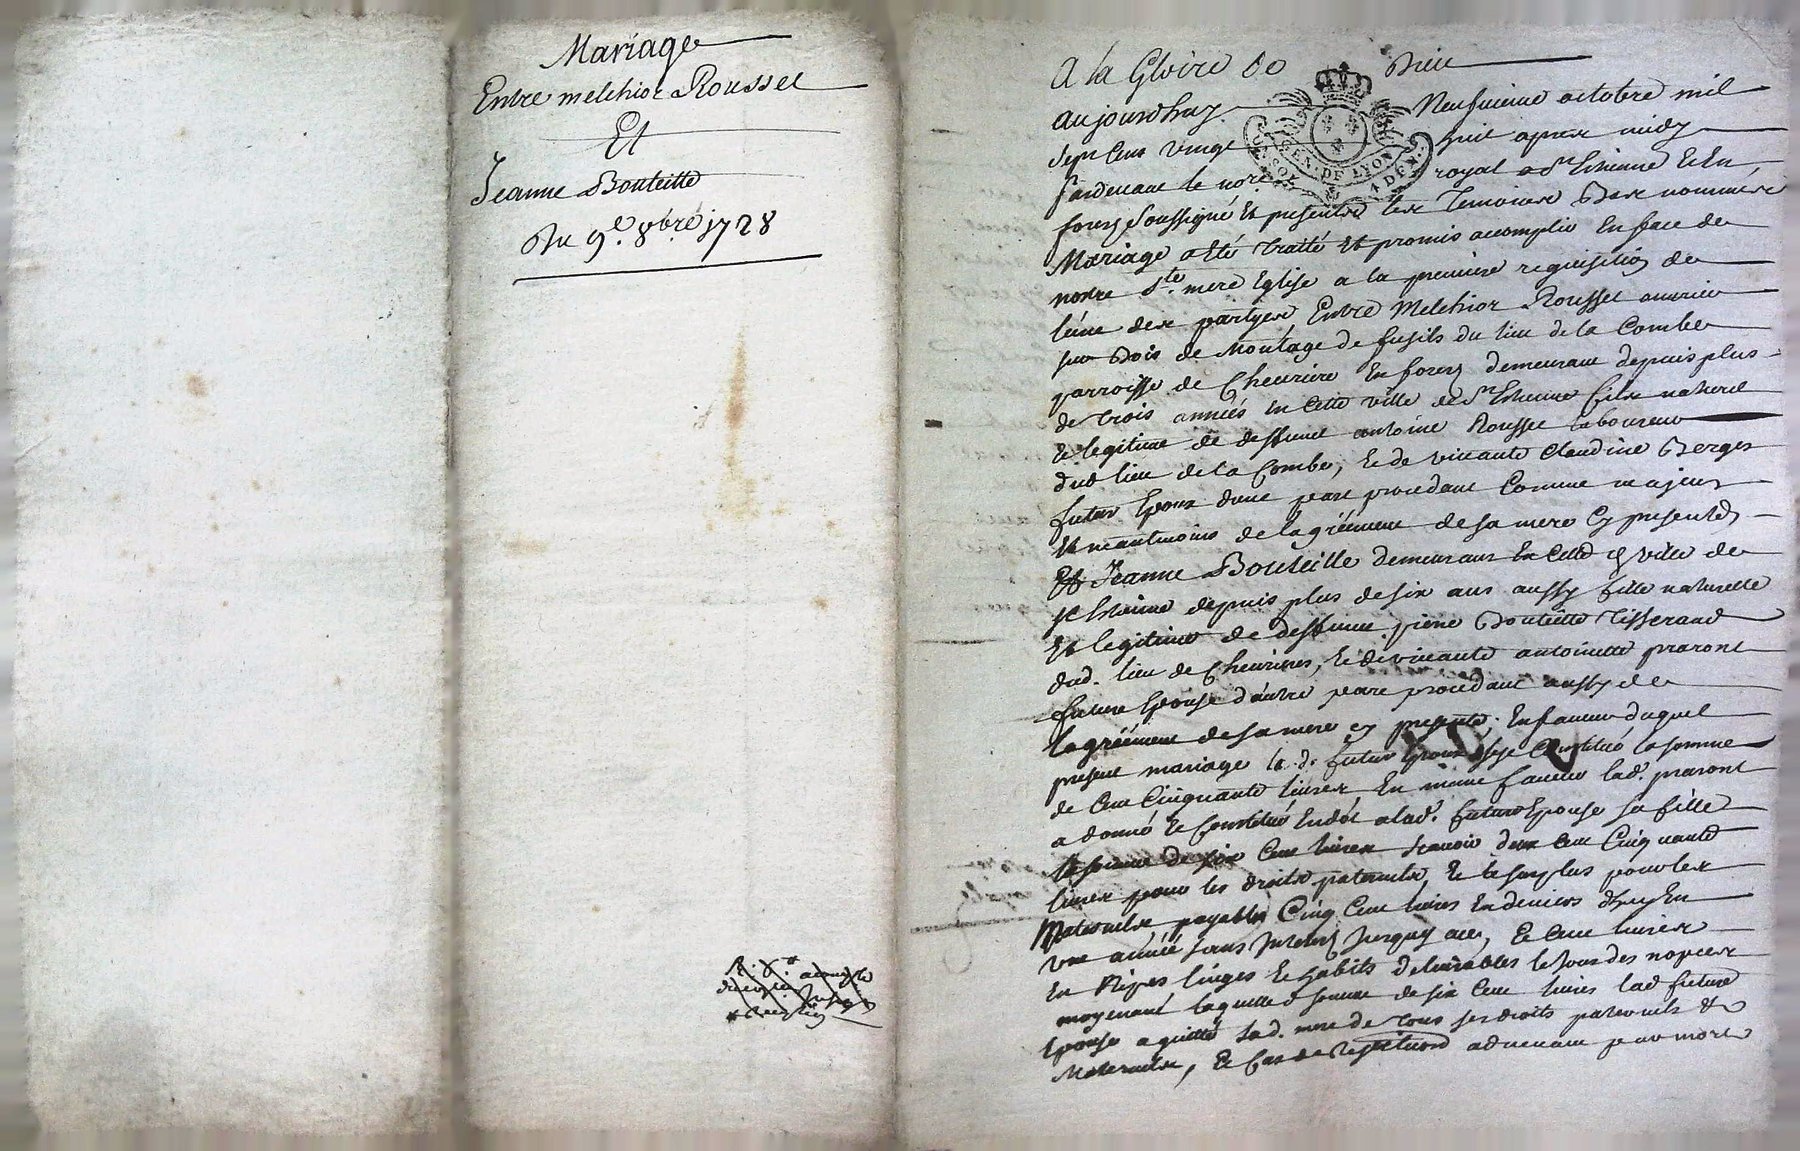 Mariage
Entre melchior Rousset
Et
Jeanne Bouteille
Du 9e. 8bre 1728
A la Gloire de Dieu
GEN. DE LYON
4 DEN.
aujourdhuy Neufvieme octobre mil
sept cens vingt huit apres midy
pardevant le nore royal a St Estienne En
forez soussigné Et presents les Temoins Bas nommés
Mariage a été traité Et promis accomplir En face de
nostre Ste. mere Eglise a la premiere requisition de
lune des partyes Entre Melchior Rousset ouvrier
sur Bois de Montage de fusils du lieu de la Combe
parroisse de Cheuriere En forez demeurant depuis plus
de trois années En cette ville de St Estienne fils naturel
Et legitime de deffunt antoine Rousset laboureur
dud lieu de la Combe, Et de vivante Claudine Berger
futur Epoux dune part procedant Comme majeur
Et neantmoins de lagréement de sa mere Cy presente
Et Jeanne Bouteille demeurant En cette ville de
St Estienne depuis plus de six ans aussy fille naturelle
Et legitime de deffunt piere Bouteille Tisserand
dud. lieu de Cheurieres, Et de vivante antoinette praront
future Epouse dautre part procedant aussy de
lagréement de sa mere cy presente. En faveur duquel
present mariage le d. futur Epoux sest Constitué la somme
de Cent Cinquante livres En meme faveur lad. praront
a donné Et Constitué En dot a lad. future Epouse sa fille
la somme de six Cent livres scavoir deux Cent Cinquante
livres pour les droits paternels, Et le surplus pour les
Maternels payables Cinq Cent livres En deniers En
une année sans Interest jusquy a, Et Cent livres
En Nipes linges Et habits delivrables le jour des nopces
moyenant laquelle somme de six Cent livres lad future
Epouse a quitté sad. mere de tous ses droits paternels Et
Maternels, Et Cas de Restitution advenant par mort